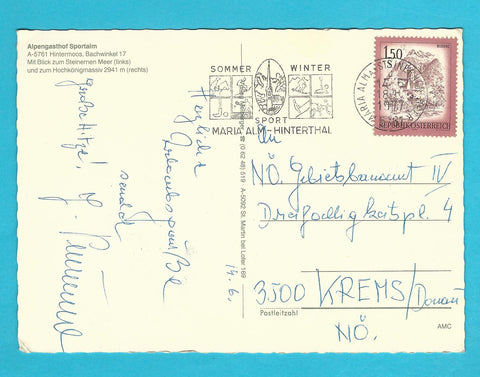 Alpengasthof Sportalm
A-5761 Hintermoos, Bachwinkel 17
Mit Blick zum Steinernen Meer (links)
und zum Hochkönigmassiv 2941 m (rechts)
SOMMER WINTER
SPORT
MARIA ALM-HINTERTHAL
1,50
REPUBLIK ÖSTERREICH
MARIA ALM
Herzliche
Urlaubsgrüße
sendet
große Hitze!
14.6.
(0 62 48) 519 A-5092 St. Martin bei Lofer 169
An
NÖ. Gebietsbauamt IV
Dreifaltigkeitspl. 4
3500 KREMS/Donau
Postleitzahl
NÖ.
AMC